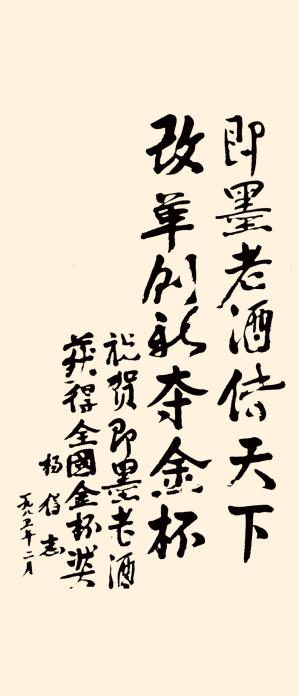 即墨老酒传天下
改革创新夺金杯
祝贺即墨老酒
获得全國金杯奖
杨得志
一九八五年二月